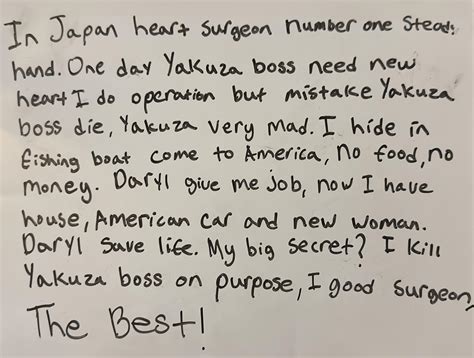 In Japan heart surgeon number one Steady
hand. One day Yakuza boss need new
heart I do operation but mistake Yakuza
boss die, Yakuza very mad. I hide in
fishing boat come to America, no food, no
money. Daryl give me job, now I have
house, American car and new woman.
Daryl Save life. My big secret? I Kill
Yakuza boss on purpose, I good surgeon,
The Best!